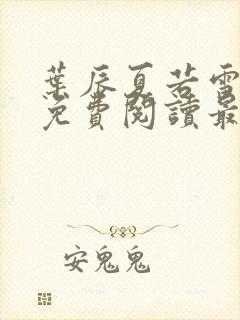 葉辰夏若雪
免費閱讀最
安鬼鬼